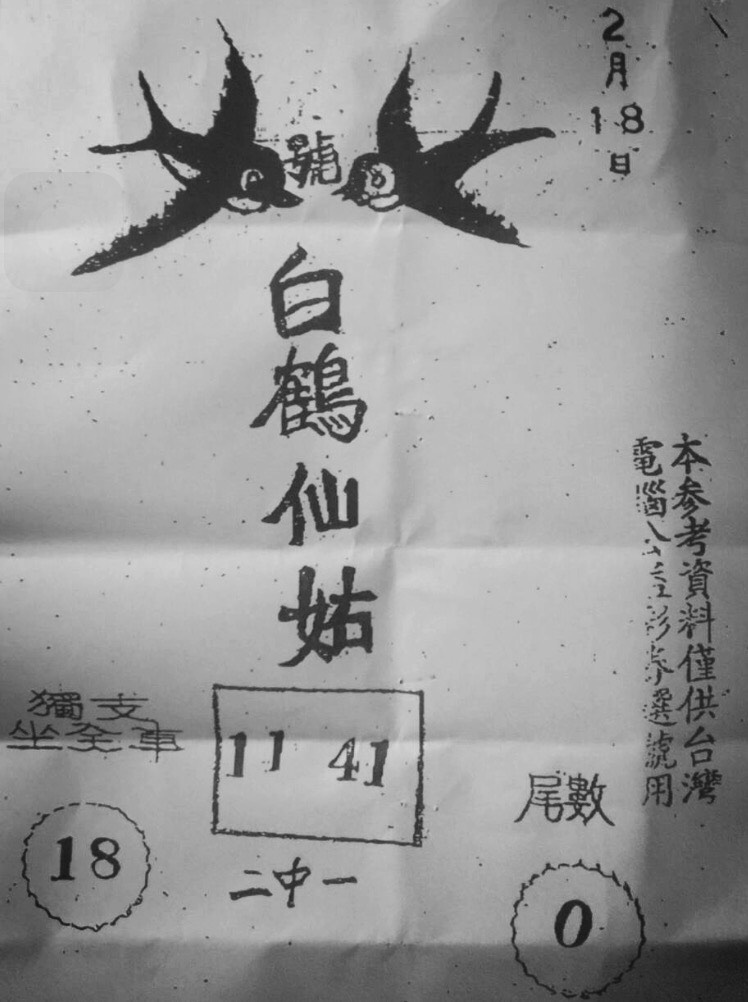 2月18日
號
白鶴仙姑
本参考資料僅供台灣
電腦公益彩券選號用
獨支
坐全車
18
11 41
二中一
尾數
0